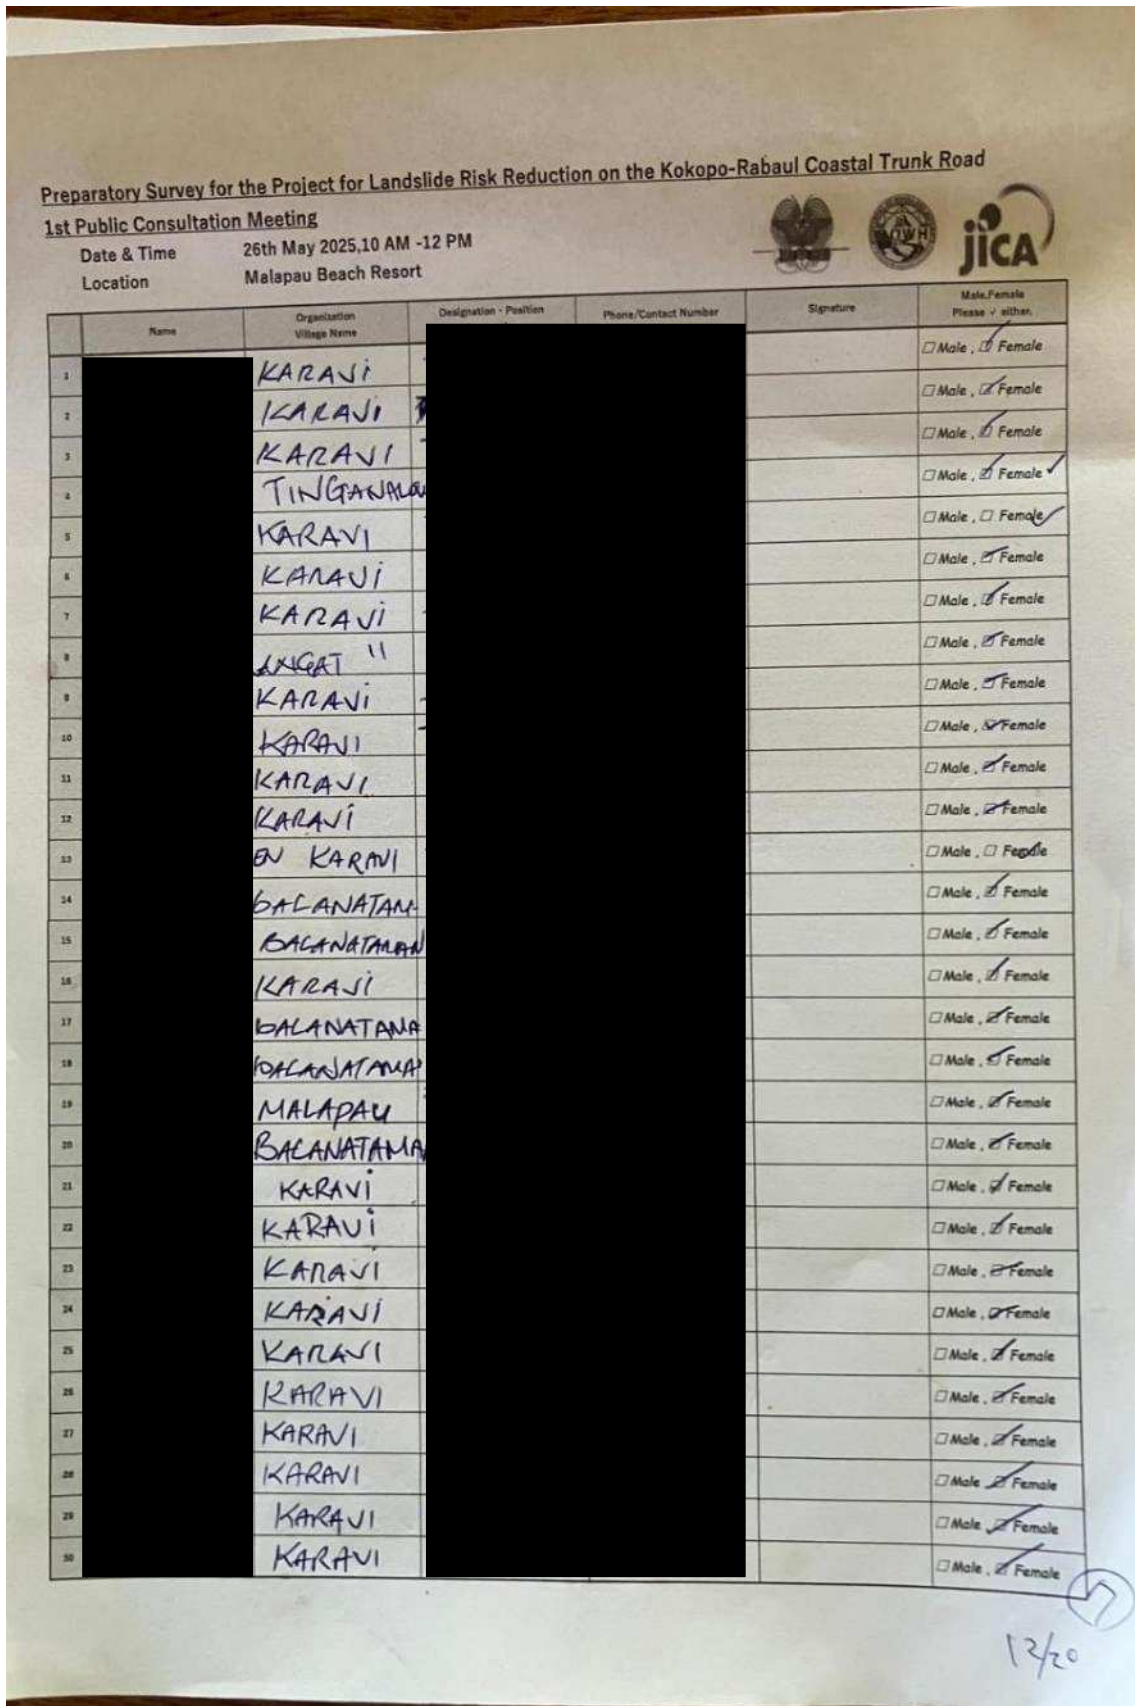 Preparatory Survey for the Project for Landslide Risk Reduction on the Kokopo-Rabaul Coastal Trunk Road
1st Public Consultation Meeting
Date & Time 26th May 2025,10 AM -12 PM
Location Malapau Beach Resort
JICA
Name Organization Village Name Designation · Position Phone/Contact Number Signature Male,Female Please ✓ either.
1 KARAVI □ Male , ☑ Female
2 KARAVI □ Male , ☑ Female
3 KARAVI □ Male , ☑ Female
4 TINGANALOU □ Male , ☑ Female ✓
5 KARAVI □ Male , □ Female ✓
6 KARAVI □ Male , ☑ Female
7 KARAVI □ Male , ☑ Female
8 11 □ Male , ☑ Female
9 KARAVI □ Male , ☑ Female
10 KARAVI □ Male , ☑ Female
11 KARAVI □ Male , ☑ Female
12 KARAVI □ Male , ☑ Female
13 EN KARAVI □ Male , □ Female
14 BALANATAM □ Male , ☑ Female
15 BALANATAMAN □ Male , ☑ Female
16 KARAVI □ Male , ☑ Female
17 BALANATAMA □ Male , ☑ Female
18 BALANATAMA □ Male , ☑ Female
19 MALAPAU □ Male , ☑ Female
20 BALANATAMA □ Male , ☑ Female
21 KARAVI □ Male , ☑ Female
22 KARAVI □ Male , ☑ Female
23 KARAVI □ Male , ☑ Female
24 KARAVI □ Male , ☑ Female
25 KARAVI □ Male , ☑ Female
26 KARAVI □ Male , ☑ Female
27 KARAVI □ Male , ☑ Female
28 KARAVI □ Male , ☑ Female
29 KARAVI □ Male , ☑ Female
30 KARAVI □ Male , ☑ Female
7
12/20